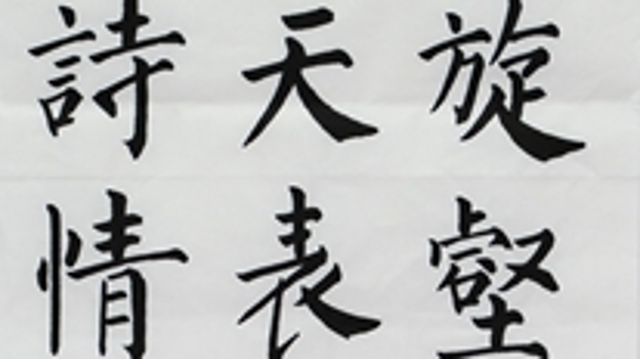 旋壑
天表
詩情